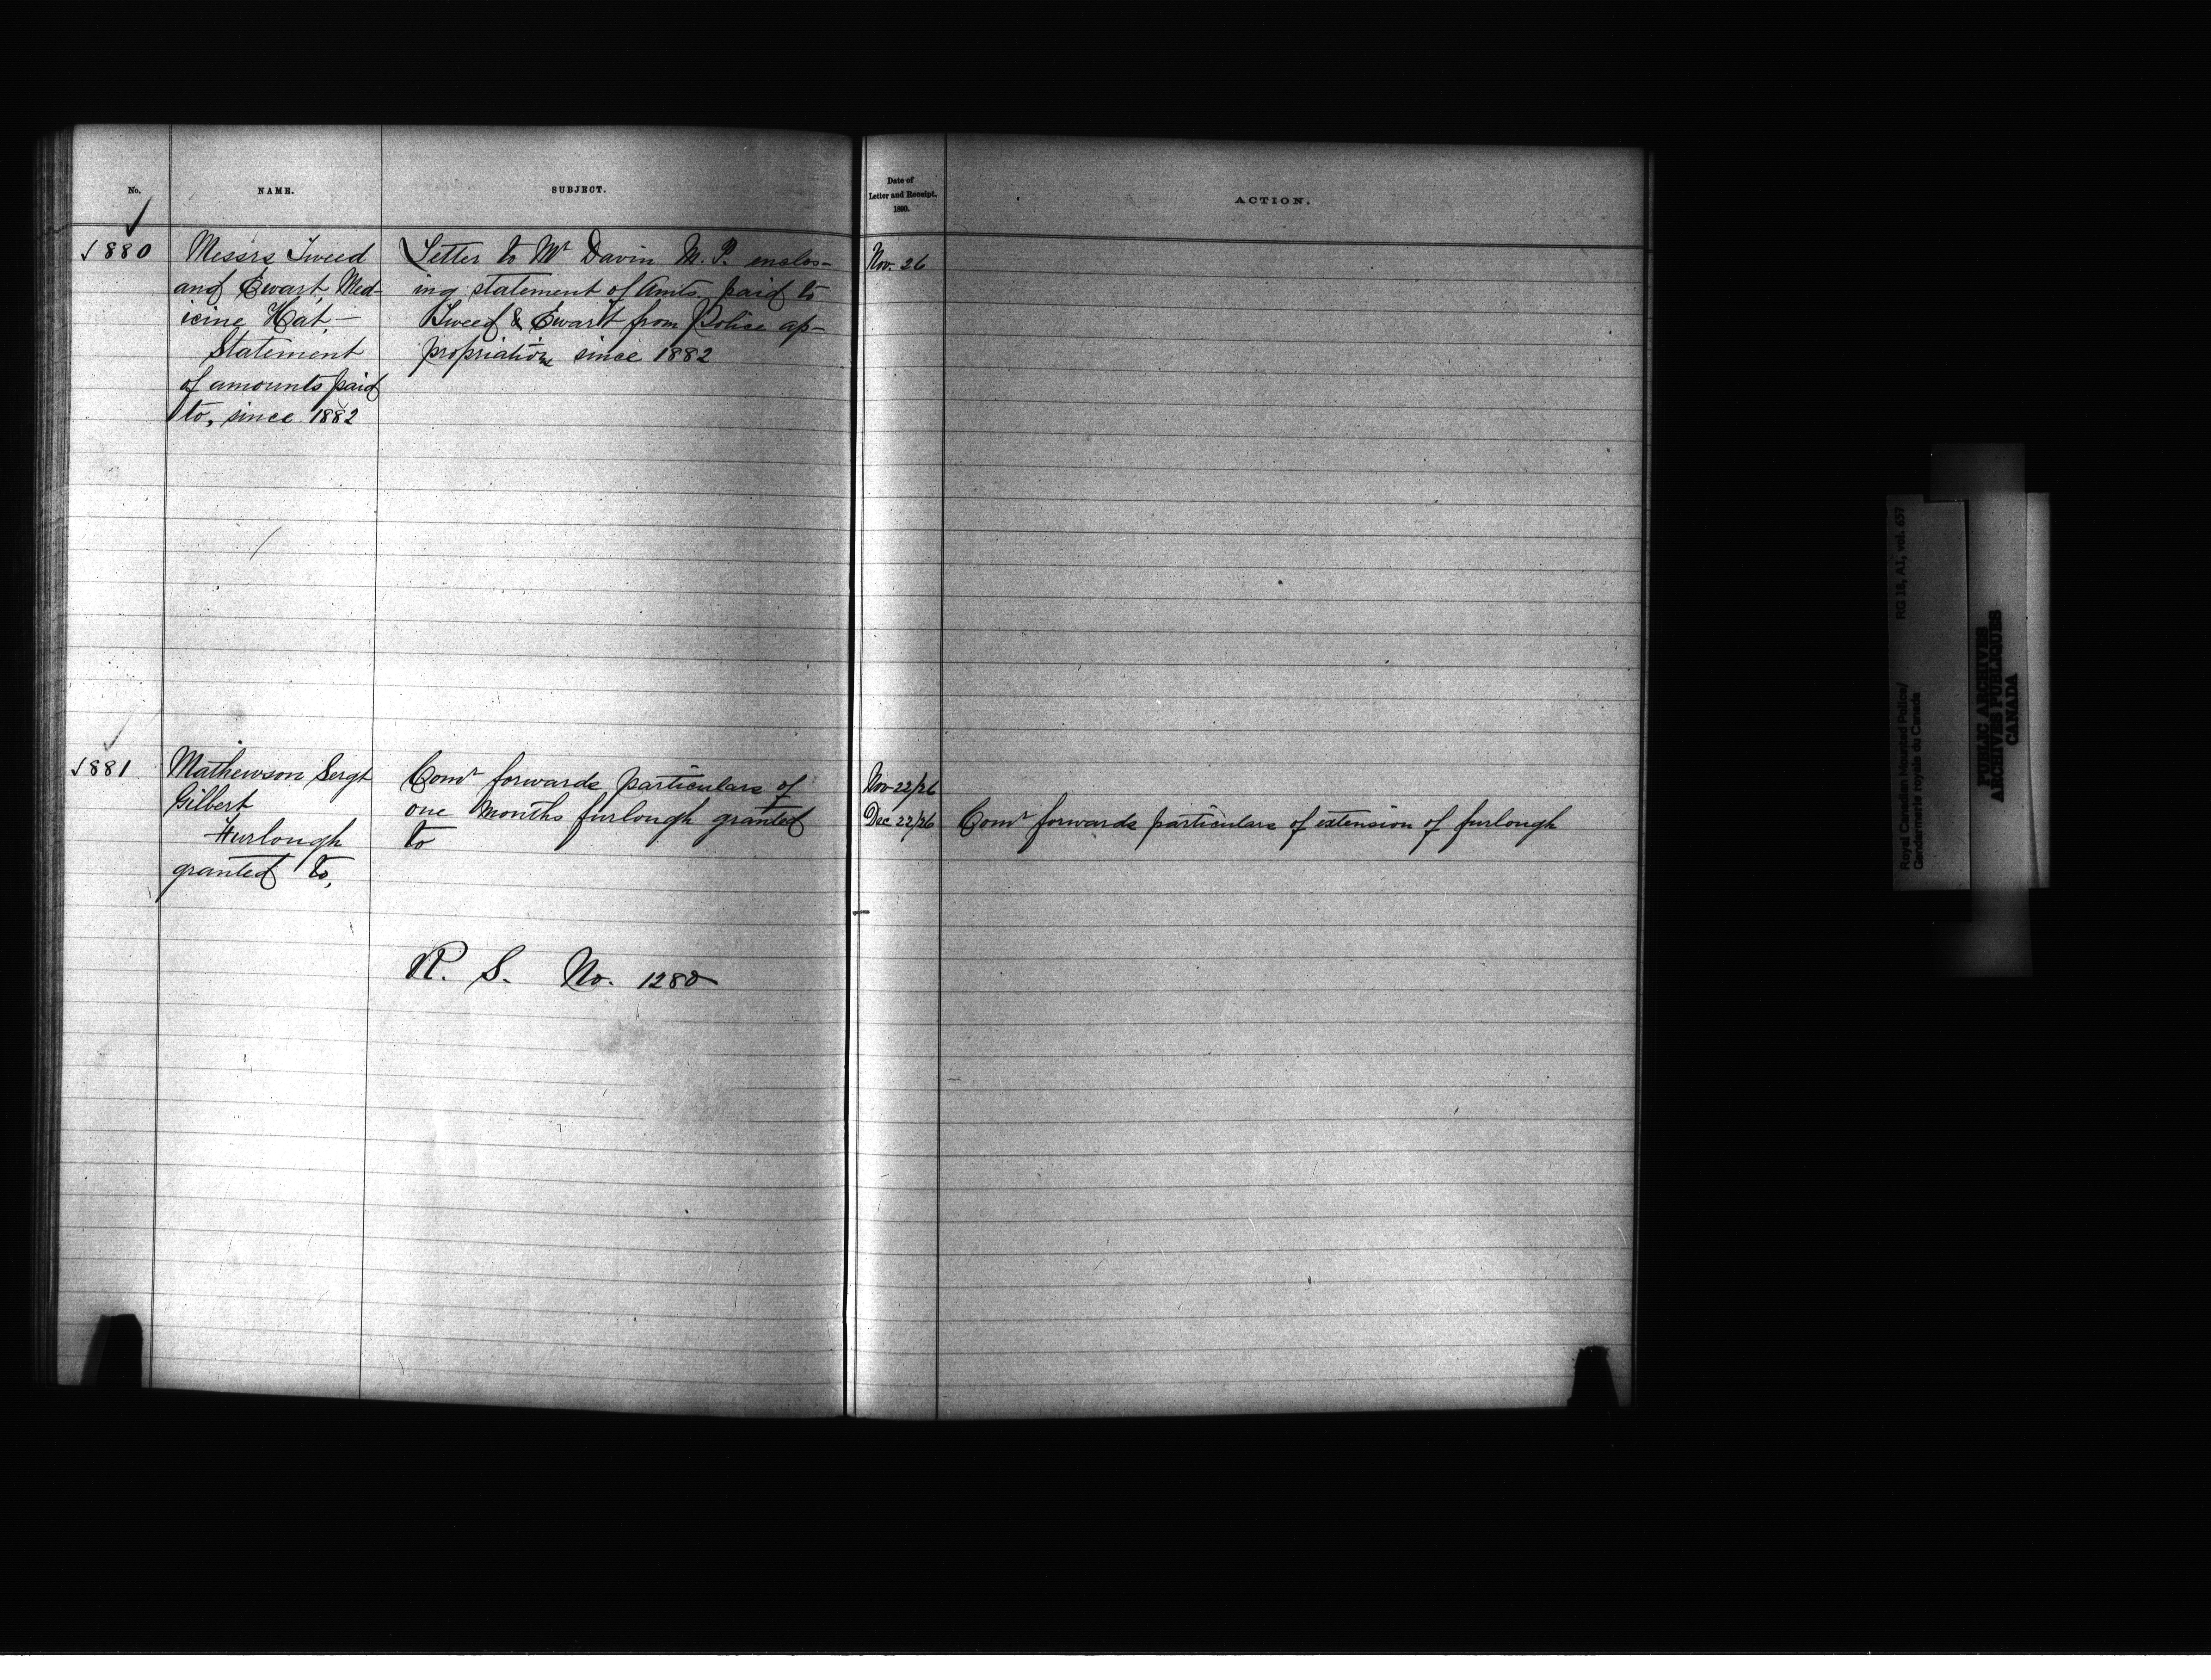 No.
NAME.
SUBJECT.
Date of
Letter and Receipt.
1890.
ACTION.
1880
Messrs Tweed
and Ewart, Med-
icine Hat, —
Statement
of amounts paid
to, since 1882
Letter to Mr Davin M.P. enclos-
ing statement of Amts. paid to
Tweed & Ewart from Police ap-
propriations since 1882
Nov. 26
1881
Mathewson Sergt
Gilbert
Furlough
granted to,
Comr forwards particulars of
one months furlough granted
to
R. S. No. 1280
Nov 22/26
Dec 22/26
Comr forwards particulars of extension of furlough
Royal Canadian Mounted Police/
Gendarmerie royale du Canada
RG 18, A1, vol. 657
PUBLIC ARCHIVES
ARCHIVES PUBLIQUES
CANADA